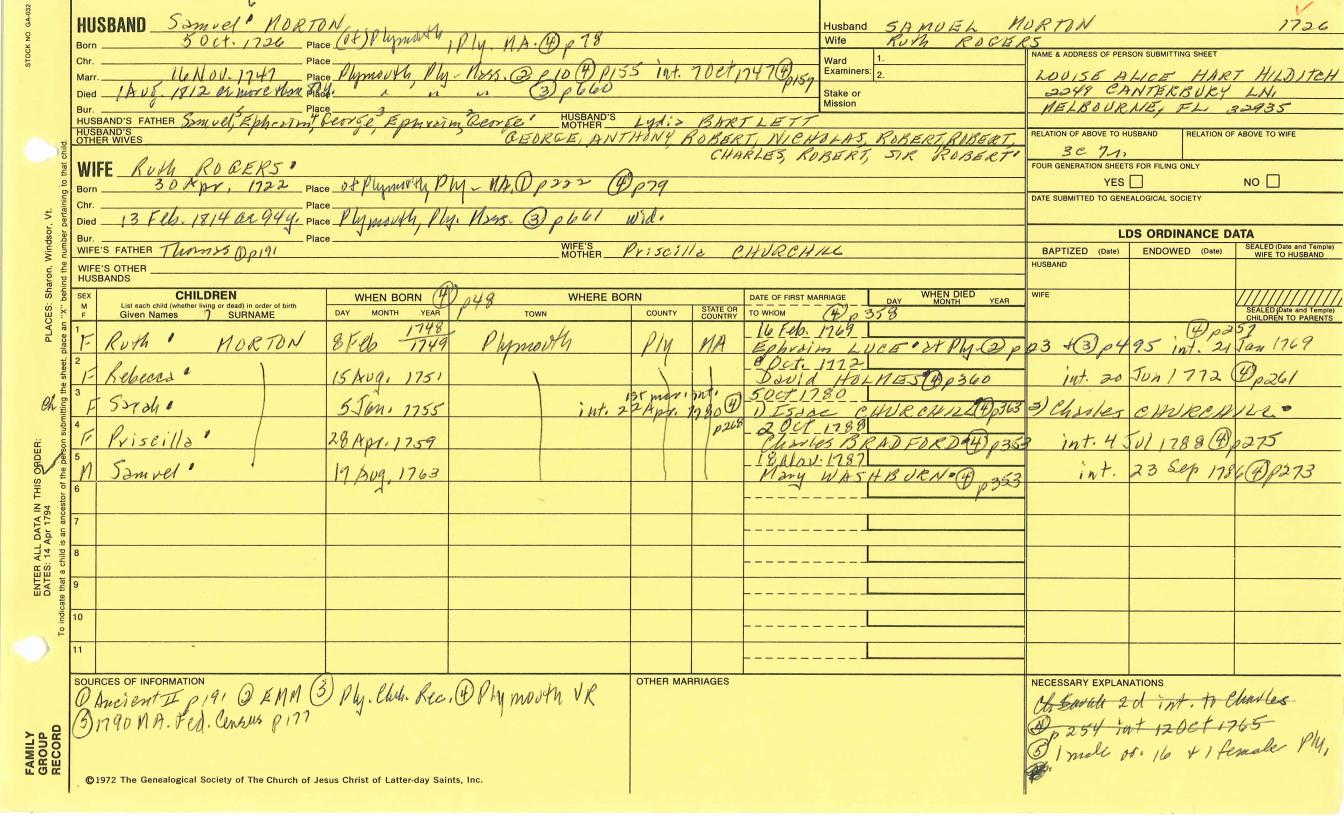 STOCK NO. GA-032
6
HUSBAND Samuel' MORTON
Born 5 Oct. 1726 Place (of) Plymouth, Ply. MA. ④ p78
Chr. Place
Marr. 16 Nov. 1747 Place Plymouth, Ply - Mass. ② p10 ④ p155 int. 7 Oct 1747 ④ p157
Died 1 Aug. 1812 or more than Place " " " ③ p660
Bur. Place
HUSBAND'S FATHER Samuel, Ephraim, George, Ephraim, George HUSBAND'S MOTHER Lydia BARTLETT
HUSBAND'S OTHER WIVES GEORGE, ANTHONY, ROBERT, NICHOLAS, ROBERT, ROBERT,
CHARLES, ROBERT, SIR ROBERT'
WIFE Ruth ROGERS'
Born 30 Apr. 1722 Place of Plymouth, Ply - MA. ① p222 ④ p79
Chr. Place
Died 13 Feb. 1814 ae 94y. Place Plymouth, Ply. Mass. ③ p661 wid.
Bur. Place
WIFE'S FATHER Thomas ① p191 WIFE'S MOTHER Priscilla CHURCHILL
WIFE'S OTHER HUSBANDS
Husband SAMUEL MORTON 1726
Wife RUTH ROGERS
Ward Examiners: 1. 2.
Stake or Mission
NAME & ADDRESS OF PERSON SUBMITTING SHEET
LOUISE ALICE HART HILDITCH
2248 CANTERBURY LN.
MELBOURNE, FL 32935
RELATION OF ABOVE TO HUSBAND RELATION OF ABOVE TO WIFE
3c 7r.
FOUR GENERATION SHEETS FOR FILING ONLY
YES NO
DATE SUBMITTED TO GENEALOGICAL SOCIETY
LDS ORDINANCE DATA
BAPTIZED (Date) ENDOWED (Date) SEALED (Date and Temple) WIFE TO HUSBAND
HUSBAND
WIFE
SEALED (Date and Temple) CHILDREN TO PARENTS
SEX M F CHILDREN List each child (whether living or dead) in order of birth Given Names 7 SURNAME
WHEN BORN ④ p48 DAY MONTH YEAR
WHERE BORN TOWN COUNTY STATE OR COUNTRY
DATE OF FIRST MARRIAGE TO WHOM ④ p358
WHEN DIED DAY MONTH YEAR
1 F Ruth' MORTON 8 Feb 1748/1749 Plymouth Ply MA 16 Feb. 1769 Ephraim LUCE' of Ply. ② p23 + ③ p495 int. 21 Jan 1769 ④ p257
2 F Rebecca' 15 Aug. 1751 8 Oct. 1772 David HOLMES ④ p360 int. 20 Jun 1772 ④ p261
3 Ch F Sarah' 5 Jan. 1755 int. 22 Apr. 1780 ④ p268 5 Oct 1780 1) Isaac CHURCHILL ④ p363 2) Charles CHURCHILL'
4 F Priscilla' 28 Apr. 1759 2 Oct 1788 Charles BRADFORD ④ p353 int. 4 Jul 1788 ④ p275
5 M Samuel' 17 Aug. 1763 18 Nov. 1787 Mary WASHBURN' ④ p353 int. 23 Sep 1786 ④ p273
6
7
8
9
10
11
SOURCES OF INFORMATION
① Ancient II p191 ② EMM ③ Ply. Chh. Rec. ④ Plymouth VR
⑤ 1790 MA. Fed. Census p177
OTHER MARRIAGES
NECESSARY EXPLANATIONS
Ch Sarah 2d int. to Charles
④ p254 int 12 Oct 1765
⑤ 1 male ov. 16 + 1 female Ply,
©1972 The Genealogical Society of The Church of Jesus Christ of Latter-day Saints, Inc.
FAMILY GROUP RECORD
ENTER ALL DATA IN THIS ORDER:
DATES: 14 Apr 1794
PLACES: Sharon, Windsor, Vt.
To indicate that a child is an ancestor of the person submitting the sheet, place an "X" behind the number pertaining to that child.